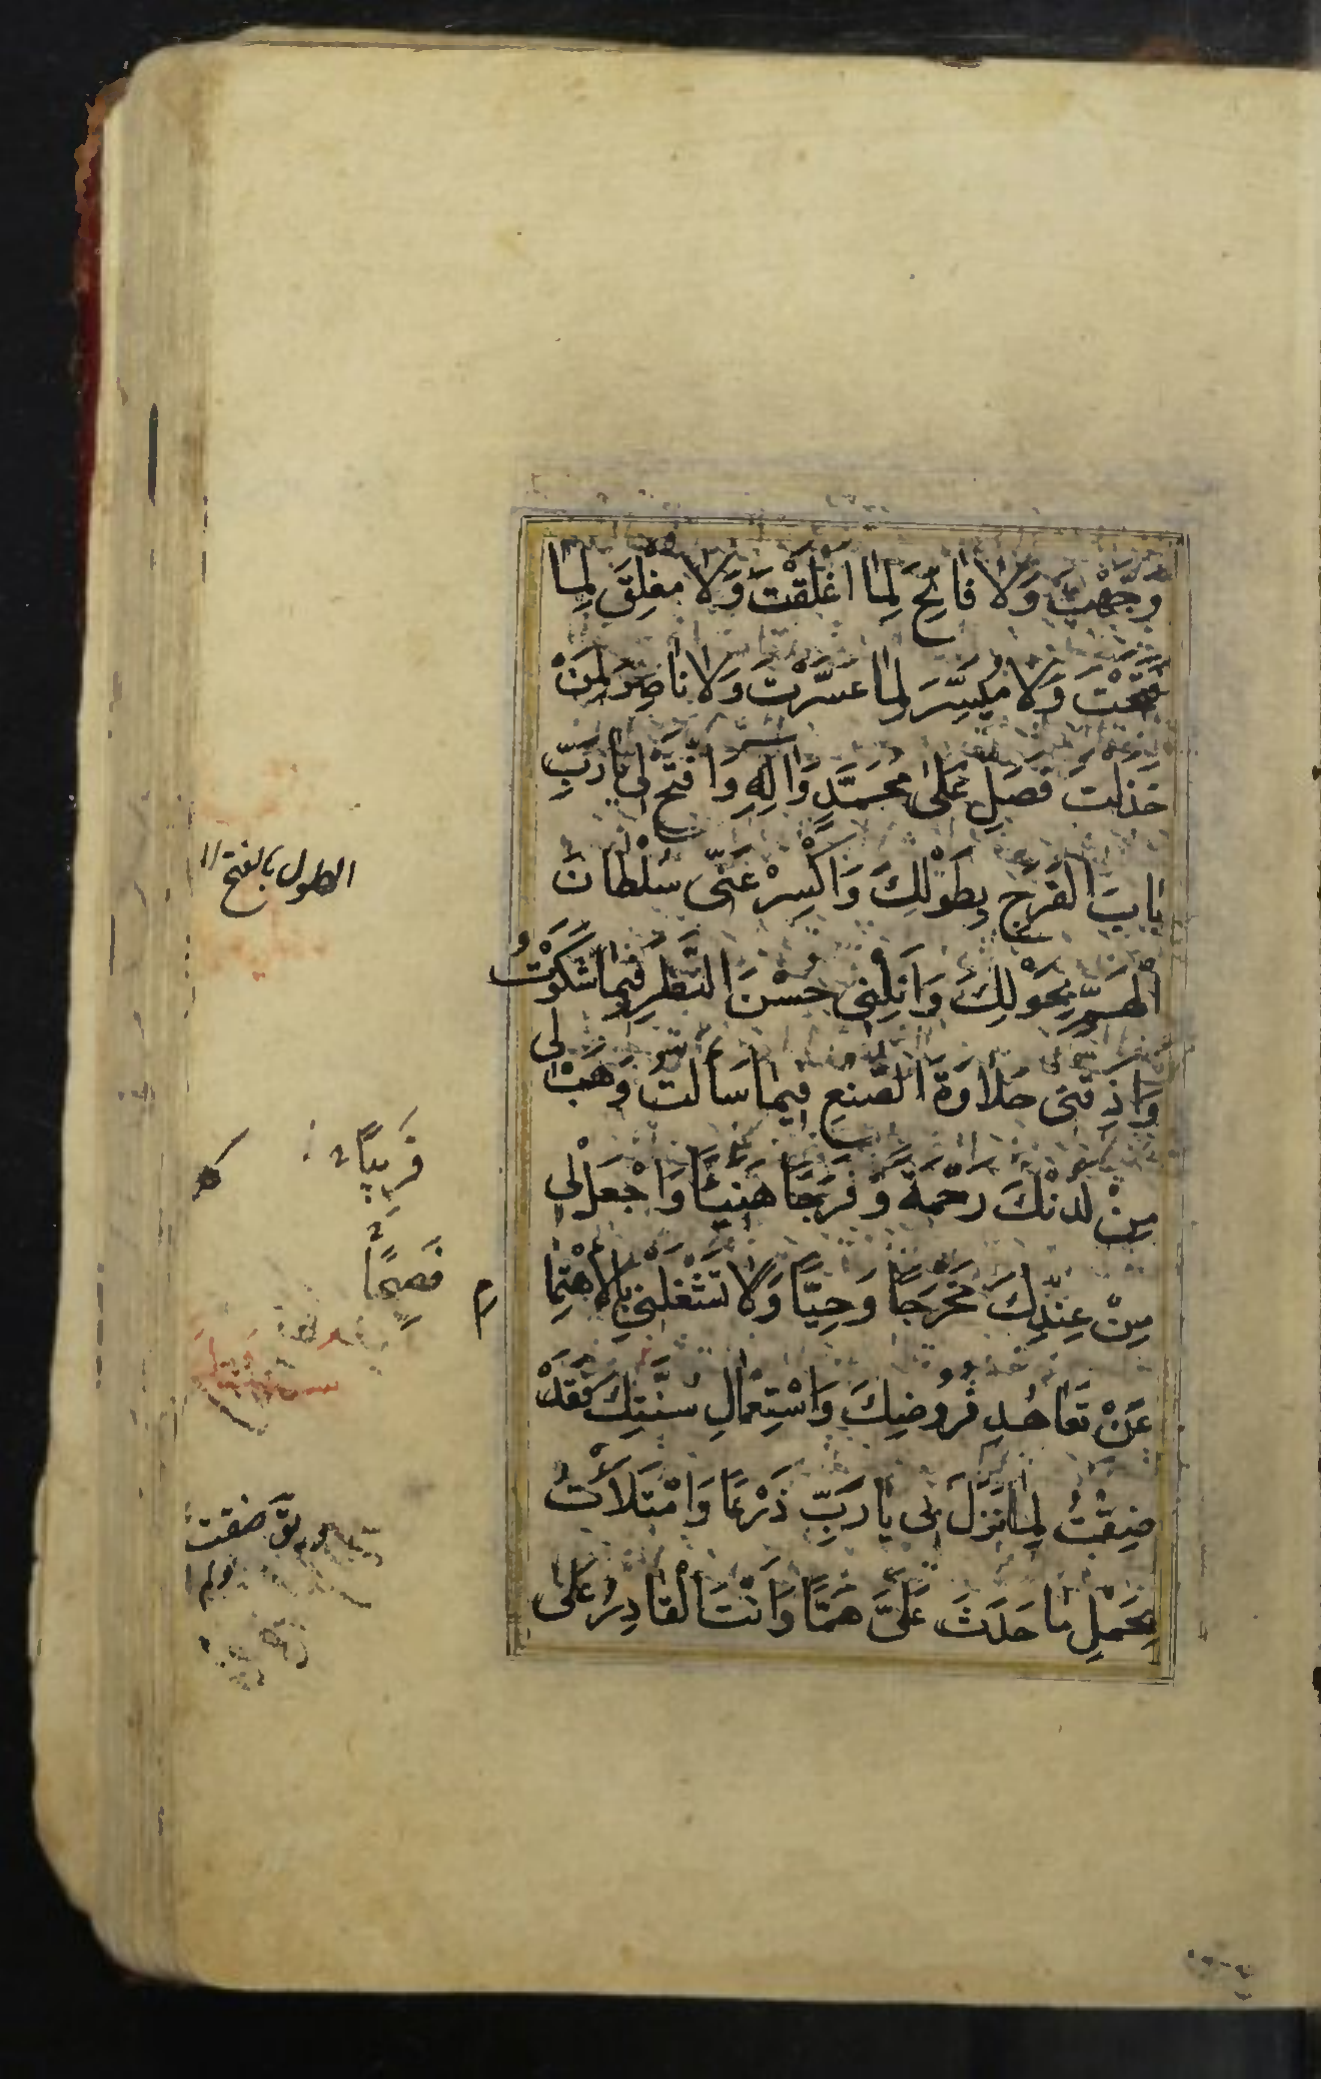 وَجَّهْتَ وَلَا فَاتِحَ لِمَا اَغْلَقْتَ وَلَا مُغْلِقَ لِمَا
فَتَحْتَ وَلَا مُيَسِّرَ لِمَا عَسَّرْتَ وَلَا نَاصِرَ لِمَنْ
خَذَلْتَ فَصَلِّ عَلَى مُحَمَّدٍ وَاٰلِهِ وَافْتَحْ لِى يَا رَبِّ
بَابَ الْفَرَجِ بِطَوْلِكَ وَاكْسِرْ عَنِّى سُلْطَانَ
الْهَمِّ بِحَوْلِكَ وَاَنِلْنِى حُسْنَ النَّظَرِ فِيمَا شَكَوْتُ
وَاَذِقْنِى حَلَاوَةَ الصُّنْعِ فِيمَا سَاَلْتُ وَهَبْ لِى
مِنْ لَدُنْكَ رَحْمَةً وَفَرَجًا هَنِيئًا وَاجْعَلْ لِى
مِنْ عِنْدِكَ مَخْرَجًا وَحِيًّا وَلَا تَشْغَلْنِى بِالْاِهْتِمَا
م
عَنْ تَعَاهُدِ فُرُوضِكَ وَاسْتِعْمَالِ سُنَّتِكَ فَقَدْ
ضِقْتُ لِمَا نَزَلَ بِى يَا رَبِّ ذَرْعًا وَامْتَلَاْتُ
بِحَمْلِ مَا حَدَثَ عَلَىَّ هَمًّا وَاَنْتَ الْقَادِرُ عَلٰى
الطول بالفتح
قَرِيبًا
فَصِيحًا
ضقت